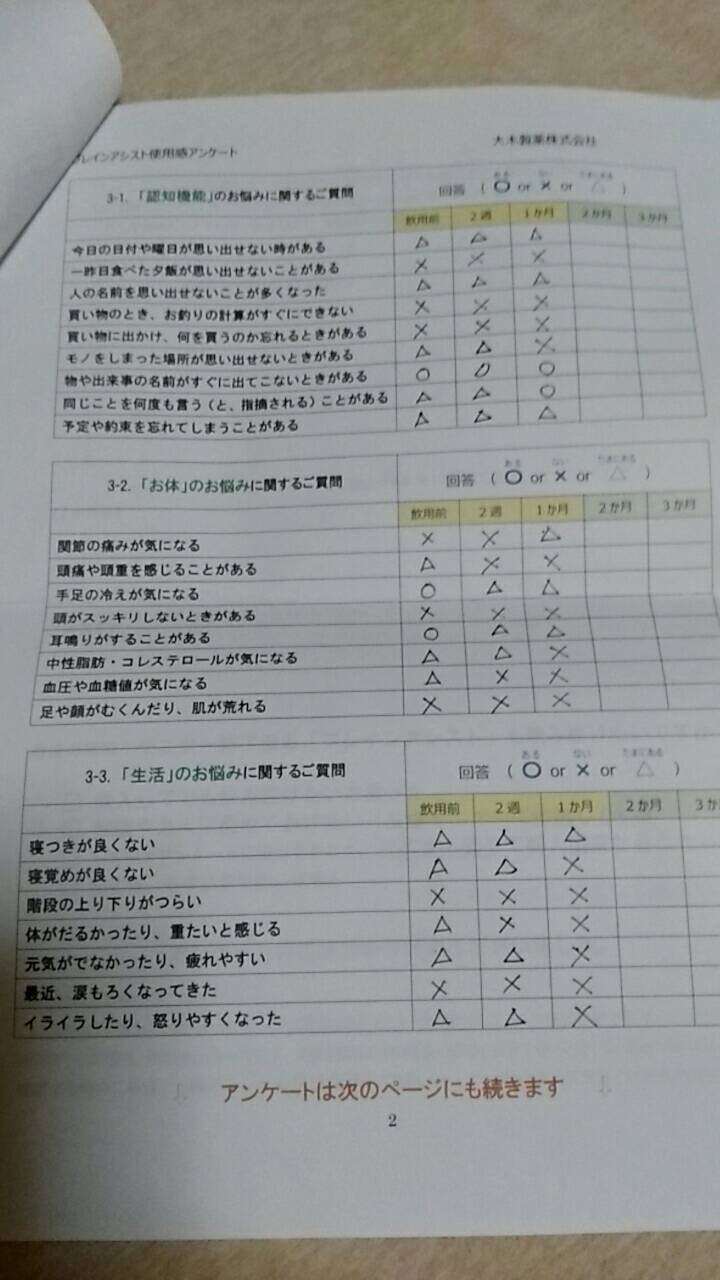 レインアシスト使用感アンケート
大木製薬株式会社
3-1.「認知機能」のお悩みに関するご質問
ある ない たまにある
回答 ( ○ or × or △ )
飲用前 2週 1か月 2か月 3か月
今日の日付や曜日が思い出せない時がある △ △ △
一昨日食べた夕飯が思い出せないことがある × × ×
人の名前を思い出せないことが多くなった △ △ △
買い物のとき、お釣りの計算がすぐにできない × × ×
買い物に出かけ、何を買うのか忘れるときがある × × ×
モノをしまった場所が思い出せないときがある △ △ ×
物や出来事の名前がすぐに出てこないときがある ○ ○ ○
同じことを何度も言う(と、指摘される)ことがある △ △ ○
予定や約束を忘れてしまうことがある △ △ △
3-2.「お体」のお悩みに関するご質問
ある ない たまにある
回答 ( ○ or × or △ )
飲用前 2週 1か月 2か月 3か月
関節の痛みが気になる × × △
頭痛や頭重を感じることがある △ × ×
手足の冷えが気になる ○ △ △
頭がスッキリしないときがある × × ×
耳鳴りがすることがある ○ △ △
中性脂肪・コレステロールが気になる △ △ ×
血圧や血糖値が気になる △ × ×
足や顔がむくんだり、肌が荒れる × × ×
3-3.「生活」のお悩みに関するご質問
ある ない たまにある
回答 ( ○ or × or △ )
飲用前 2週 1か月 2か月 3か
寝つきが良くない △ △ △
寝覚めが良くない △ △ ×
階段の上り下りがつらい × × ×
体がだるかったり、重たいと感じる △ × ×
元気がでなかったり、疲れやすい △ △ ×
最近、涙もろくなってきた × × ×
イライラしたり、怒りやすくなった △ △ ×
⇩ アンケートは次のページにも続きます ⇩
2